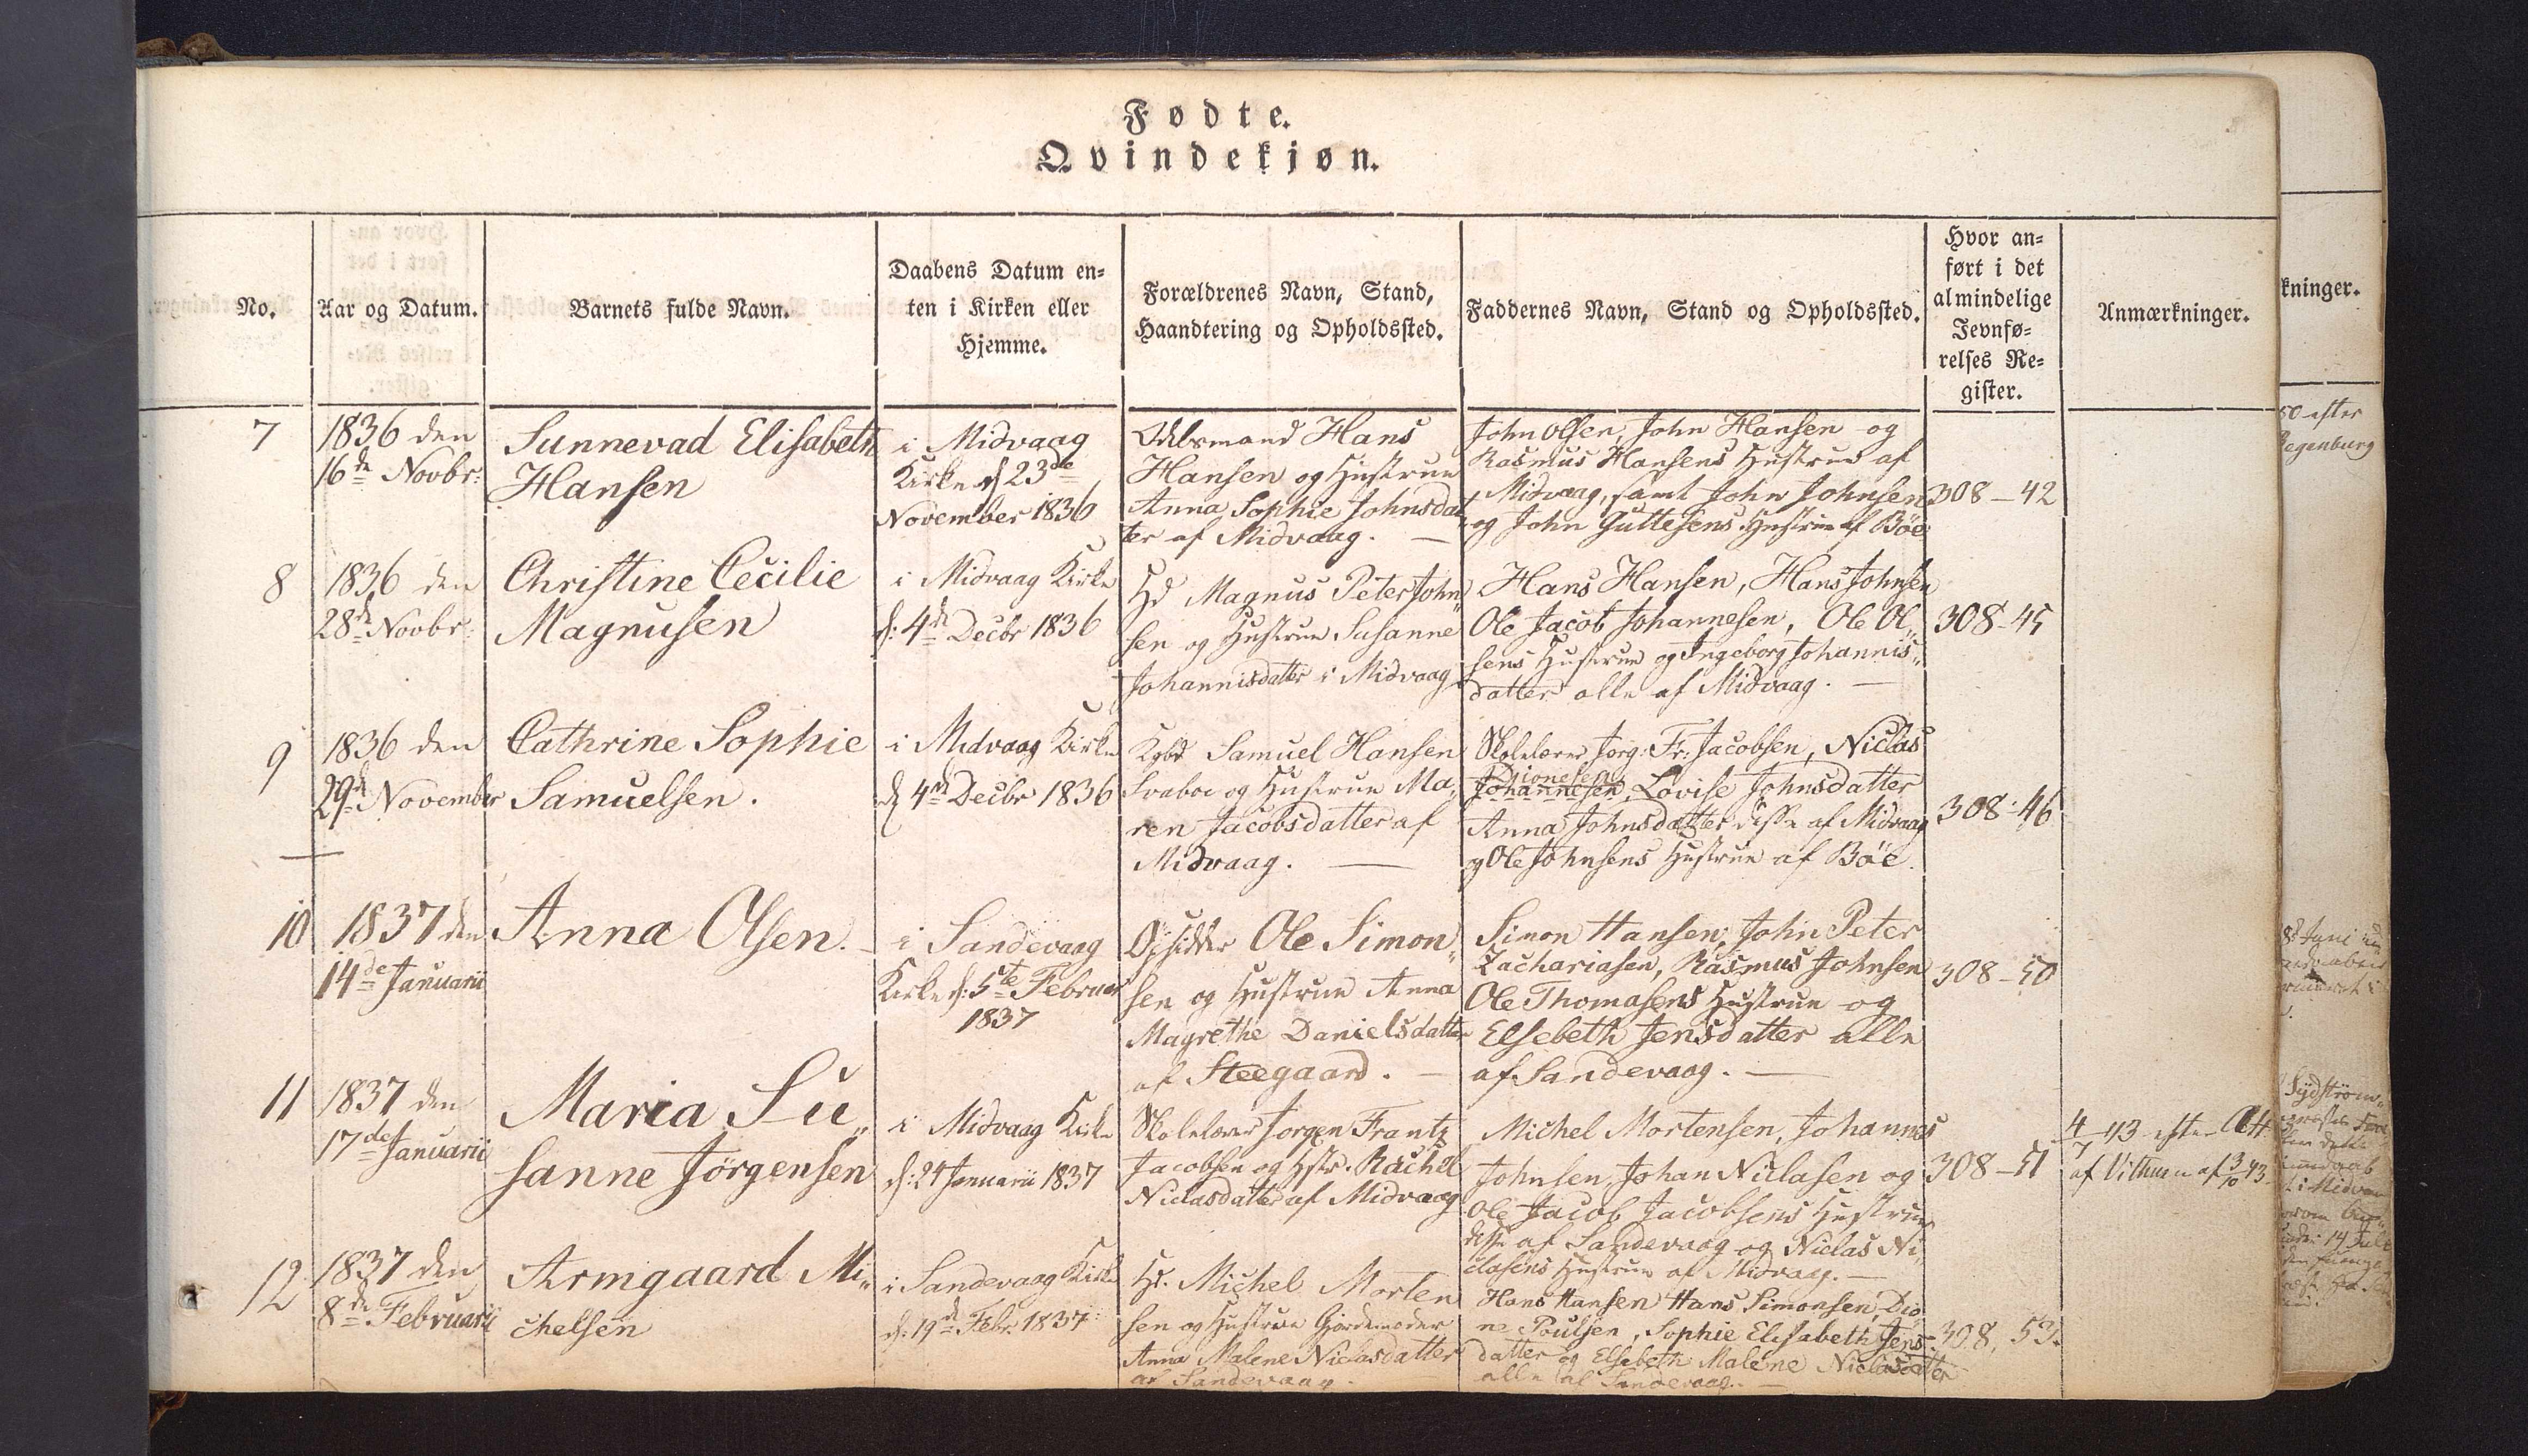 Fødte.
Qvindekjøn.
No.
Aar og Datum.
Barnets fulde Navn.
Daabens Datum en=
ten i Kirken eller
Hjemme.
Forældrenes Navn, Stand,
Haandtering og Opholdssted.
Faddernes Navn, Stand og Opholdssted.
Hvor an=
ført i det
almindelige
Jevnfø=
relses Re=
gister.
Anmærkninger.
kninger.
7
1836 den
16de Novbr:
Sunnevad Elisabeth
Hansen
i Midvaag
Kirke d 23de
November 1836
Odelsmand Hans
Hansen og Hustrue
Anna Sophie Johnsdat
ter af Midvaag. —
John Olsen, John Hansen og
Rasmus Hansens Hustrue af
Midvaag, samt John Johnsen
og John Guttesens Hustrue af Böe
308 — 42
8
1836 den
28de Novbr:
Christine Cecilie
Magnusen
i Midvaag Kirke
d: 4de Decbr 1836
Hd Magnus Peter John„
sen og Hustrue Susanne
Johannisdatter i Midvaag
Hans Hansen, Hans Johnsen
Ole Jacob Johannesen, Ole Ol„
sens Hustrue og Ingeborg Johannis„
datter alle af Midvaag. —
308-45
9
1836 den
29de November
Cathrine Sophie
Samuelsen.
i Midvaag Kirke
d 4de Decbr 1836
Kgbd Samuel Hansen
Svaboe og Hustrue Ma„
ren Jacobsdatter af
Midvaag. —
Skolelærer Jörg: Fr: Jacobsen, Niclas
Dionesen
Johannesen, Lovise Johnsdatter
Anna Johnsdatter disse af Midvaag
og Ole Johnsens Hustrue af Böe.
308-46
10
1837 den
14de Januarii
Anna Olsen. —
i Sandevaag
Kirke d: 5te Februar
1837
Opsidder Ole Simon„
sen og Hustrue Anna
Magrethe Danielsdatter
af Steegaard. —
Simon Hansen, John Peter
Zachariasen, Rasmus Johnsen
Ole Thomasens Hustrue og
Elsebeth Jensdatter alle
af Sandevaag. —
308-50
11
1837 den
17de Januarii
Maria Su„
sanne Jörgensen
i Midvaag Kirke
d: 24 Januarii 1837
Skolelærer Jörgen Frantz
Jacobsen og Hstr. Rachel
Niclasdatter af Midvaag
Michel Mortensen, Johannes
Johnsen, Johan Niclasen og
Ole Jacob Jacobsens Hustrue
disse af Sandevaag og Niclas Ni„
clasens Hustrue af Midvaag. —
308-51
4/7 43 efter Att
af Vithmen af 3/10 43.
12
1837 den
8de Februarii
Armgaard Mi„
chelsen
i Sandevaag Kirke
d: 19de Febr. 1837
Hd. Michel Morten
sen og Hustrue Gjordemoder
Anna Malene Niclasdatter
af Sandevaag.
Hans Hansen Hans Simonsen, Dio„
ne Poulsen, Sophie Elisabeth Jens
datter og Elsebeth Malene Niclasdatter
alle af Sandevaag. —
308, 53.
50 efter
Regenburg